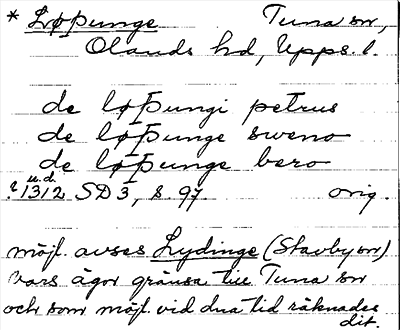 * Løþunge Tuna sn,
Olands hd, Upps. l.
de løþungi petrus
de løþunge sweno
de løþunge bero
u. d.
? 1312 SD 3, s. 97. orig.
möjl. avses Lydinge (Stavby sn)
vars ägor gränsa till Tuna sn
och som möjl. vid dna tid räknades
dit.